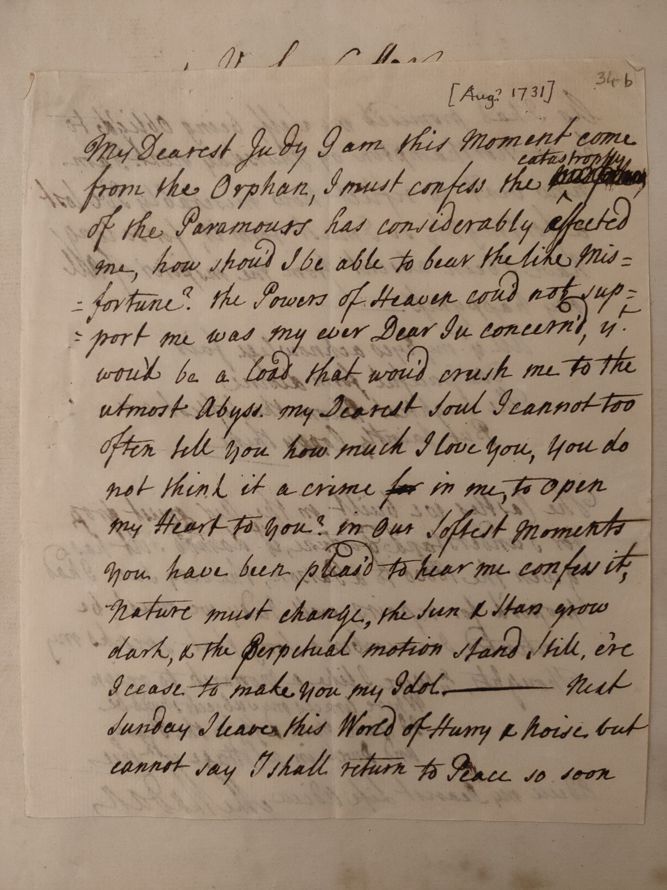 34-b
[Augt 1731]
My Dearest Judy I am this Moment come
catastrophy
from the Orphan, I must confess the
of the Paramours has considerably affected
me, how shou'd I be able to bear the like Mis=
=fortune? the Powers of Heaven coud not sup=
=port me was my ever Dear Ju concern'd, yt
wou'd be a load that wou'd crush me to the
utmost Abyss. my Dearest Soul I cannot too
often tell you how much I love you, you do
not think it a crime for in me, to open
my Heart to you? in our softest moments
you have been pleas'd to hear me confess it,
Nature must change, the Sun & Stars grow
dark, & the Perpetual motion stand still, e're
I cease to make you my Idol. ——— Next
Sunday I leave this World of Hurry & Noise but
cannot say I shall return to Peace so soon